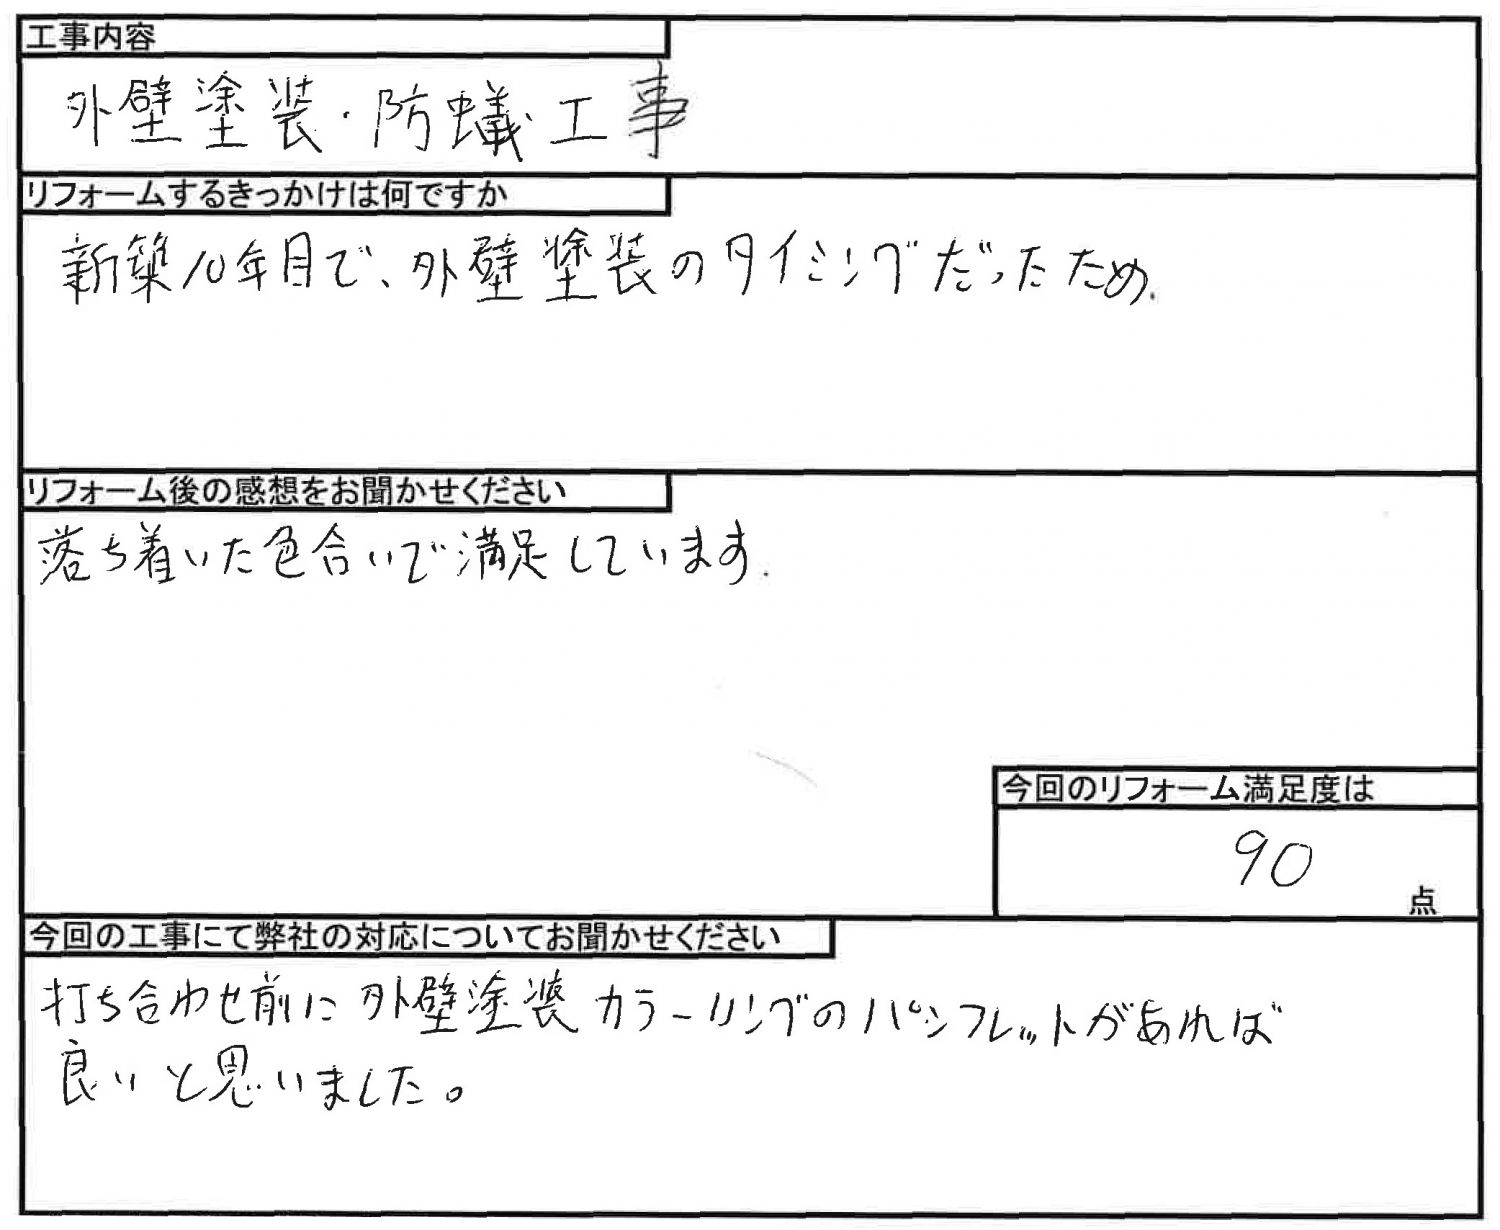 工事内容
外壁塗装・防蟻工事
リフォームするきっかけは何ですか
新築10年目で、外壁塗装のタイミングだったため.
リフォーム後の感想をお聞かせください
落ち着いた色合いで満足しています.
今回のリフォーム満足度は
90
点
今回の工事にて弊社の対応についてお聞かせください
打ち合わせ前に外壁塗装カラーリングのパンフレットがあれば
良いと思いました。